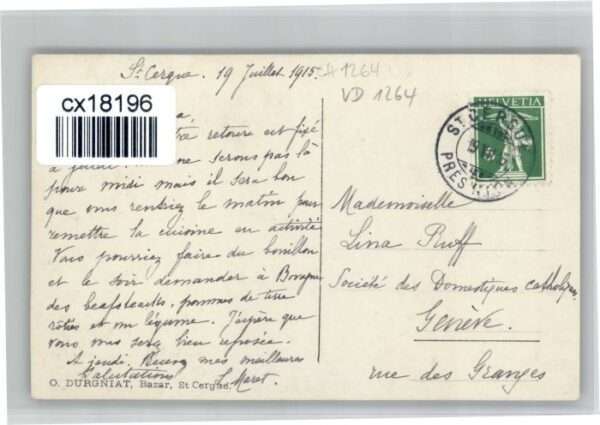 St Cergue. 19 Juillet 1915.
A 1264
VD 1264
cx18196
retour est fixé
à jeudi. ne serons pas là
pour midi mais il sera bon
que vous rentriez le matin pour
remettre la cuisine en activité
Vous pourriez faire du bouillon
et le soir demander à
des beafsteaks, pommes de terre
rôties et un légume. J'espère que
vous vous serez bien reposée.
A jeudi. mes meilleures
salutations
O. DURGNIAT, Bazar, St Cergue.
HELVETIA
ST CERGUE
PRES NYON
Mademoiselle
Lina Ruff
Société des Domestiques catholiques
Genève.
rue des Granges